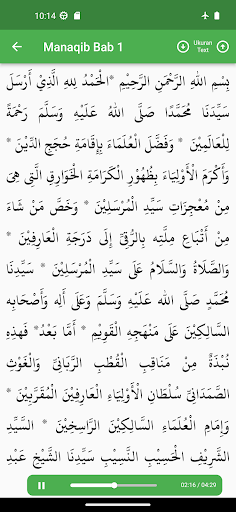 10:14
Manaqib Bab 1
Ukuran
Text
بِسْمِ اللهِ الرَّحْمٰنِ الرَّحِيْمِ *الْحَمْدُ لِلهِ الَّذِيْ أَرْسَلَ
سَيِّدَنَا مُحَمَّدًا صَلَّى اللهُ عَلَيْهِ وَسَلَّمَ رَحْمَةً
لِلْعَالَمِيْنَ * وَفَضَّلَ الْعُلَمَاءَ بِإِقَامَةِ حُجَجِ الدِّيْنَ *
وَأَكْرَمَ الْأَوْلِيَاءَ بِظُهُوْرِ الْكَرَامَةِ الْخَوَارِقِ الَّتِى هِىَ
مِنْ مُعْجِزَاتِ سَيِّدِ الْمُرْسَلِيْنَ * وَخَصَّ مَنْ شَاءَ
مِنْ أَتْبَاعِ مِلَّتِهِ بِالرُّقِىِّ إِلَى دَرَجَةِ الْعَارِفِيْنَ *
وَالصَّلَاةُ وَالسَّلَامُ عَلَى سَيِّدِ الْمُرْسَلِيْنَ * سَيِّدِنَا
مُحَمَّدٍ صَلَّى الله عَلَيْهِ وَسَلَّمَ وَعَلَى أَلِهِ وَأَصْحَابِهِ
السَّالِكِيْنَ عَلَى مَنْهَجِهِ الْقَوِيْمِ * أَمَّا بَعْدُ* فَهذِهِ
نُبْذَةٌ مِنْ مَنَاقِبِ الْقُطْبِ الرَّبَّانِيِّ وَالْغَوْثِ
الصَّمَدَانِيِّ سُلْطَانِ الْأَوْلِيَاءِ الْعَارِفِيْنَ الْمُقَرَّبِيْنَ *
وَإِمَامِ الْعُلَمَاءِ السَّالِكِيْنَ الرَّاسِخِيْنَ * السَّيِّدِ
الشَّرِيْفِ الْحَسِيْبِ النَّسِيْبِ سَيِّدِنَا الشَّيْخِ عَبْدِ
02:16 / 04:29